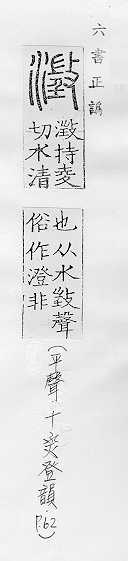 六書正譌
澂持夌
切水清
也从水聲
俗作澄非
(平聲十蒸登韻 P.62)